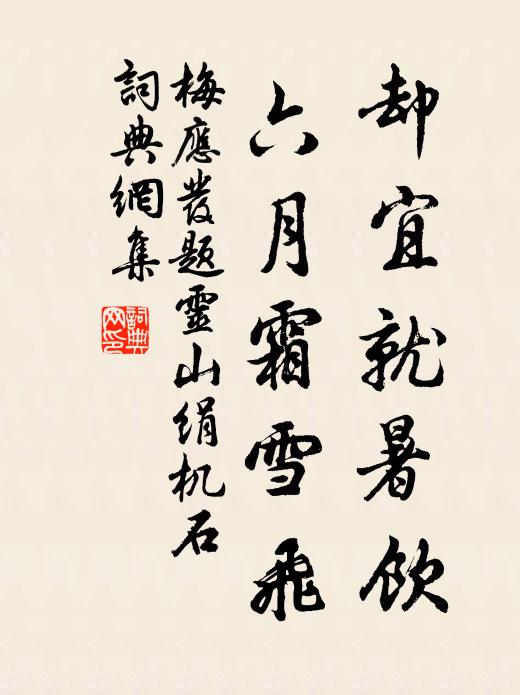 却宜就暑飲
六月霜雪飛
梅應發題靈山絹机石
詞典網集
詞典
网印